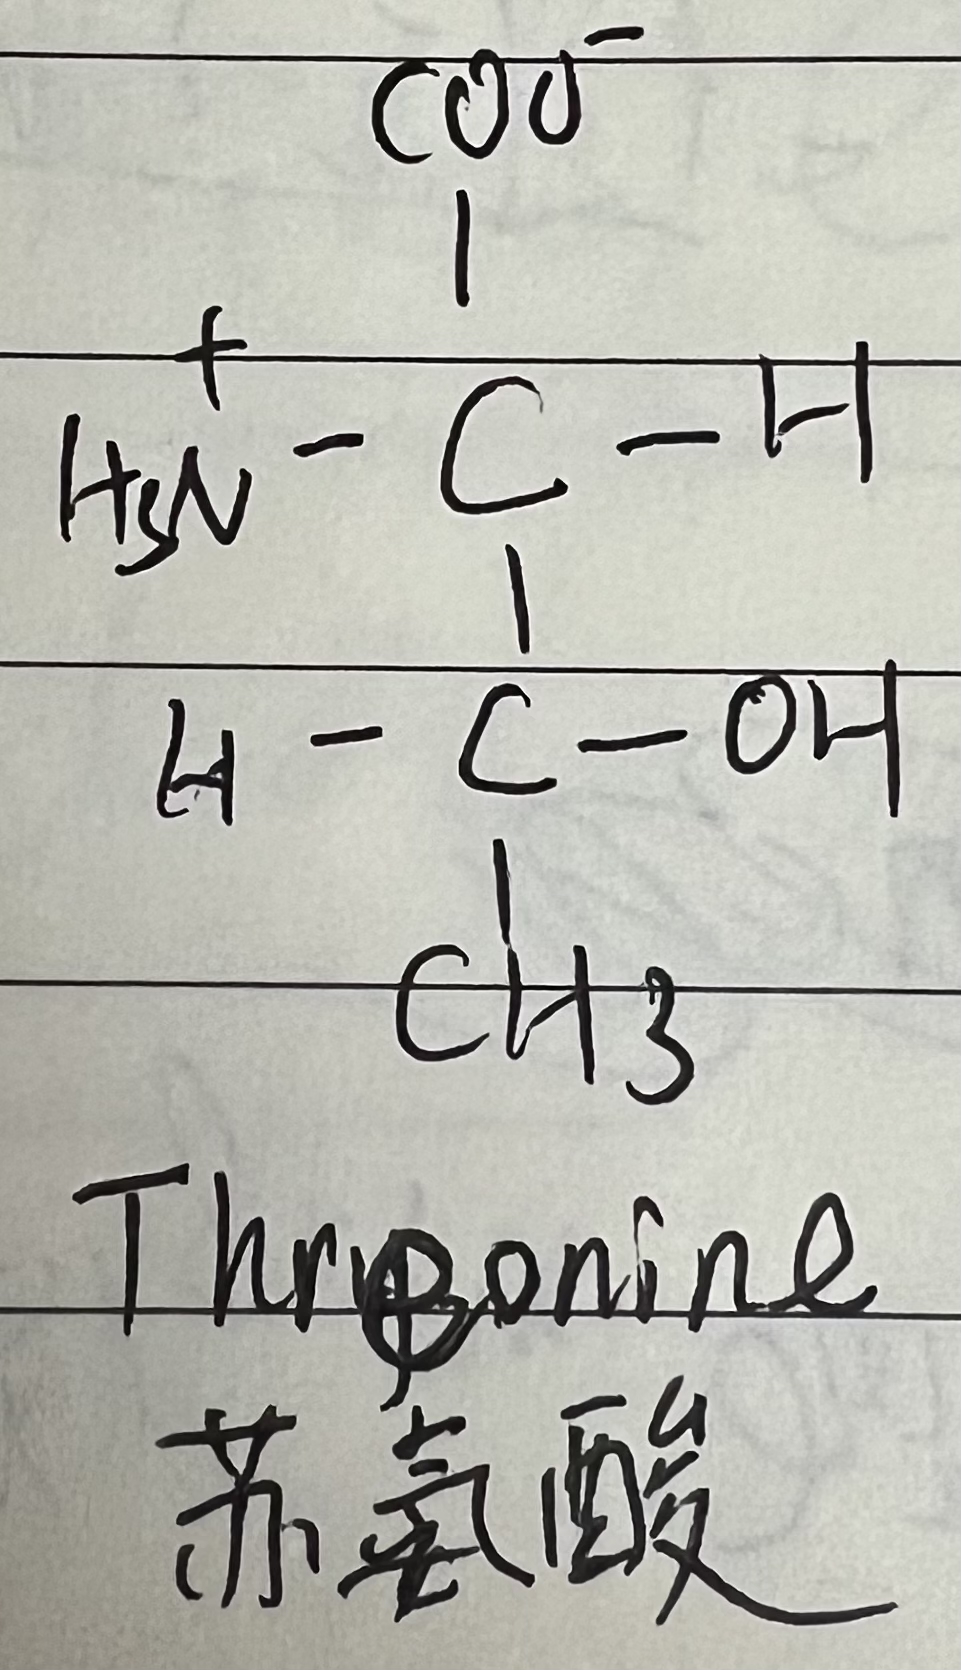 COO⁻
|
H₃N⁺ - C - H
|
H - C - OH
|
CH₃
Threonine
苏氨酸